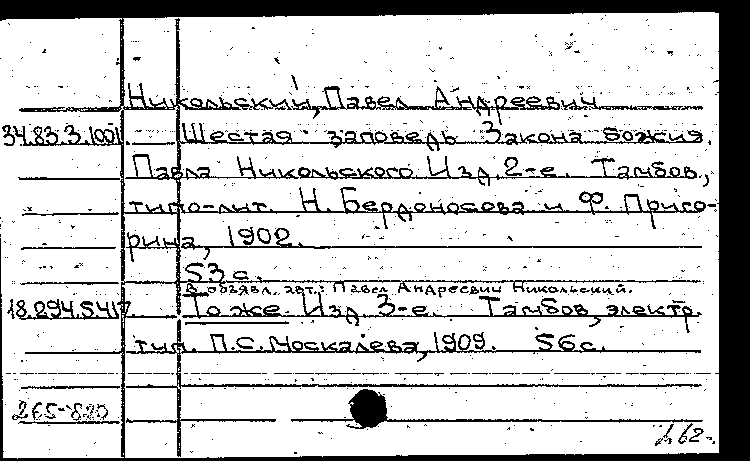 Никольский, Павел Андреевич
34.83.3.1001. Шестая заповедь Закона божия.
Павла Никольского. Изд. 2-е. Тамбов,
типо-лит. Н. Бердоносова и Ф. Приго-
рина, 1902.
53 с.
В объявл. авт.: Павел Андреевич Никольский.
18.294.5417. То же. Изд. 3-е. Тамбов, электр.
тип. П.С. Москалева, 1909. 56 с.
265-820